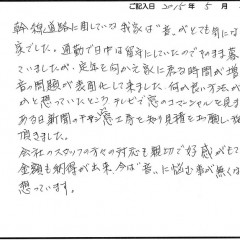 ご記入日 2015年 5月
幹線道路に面している我家は"音"がとても気になる
家でした。通勤で日中は留守にしていたのでそのまま暮
ていましたが、定年を向かえ家に居る時間が増
音の問題が表面化して来ました。何か良い方法が
かと思っていたところテレビで窓のコマーシャルを見
ある日新聞のチラシ窓工房を知り見積をお願い
頂きました。
会社のスタッフの方々の対応も親切で好感がもて
金額も納得が出来、今は"音"に悩む事が無く
思っています。